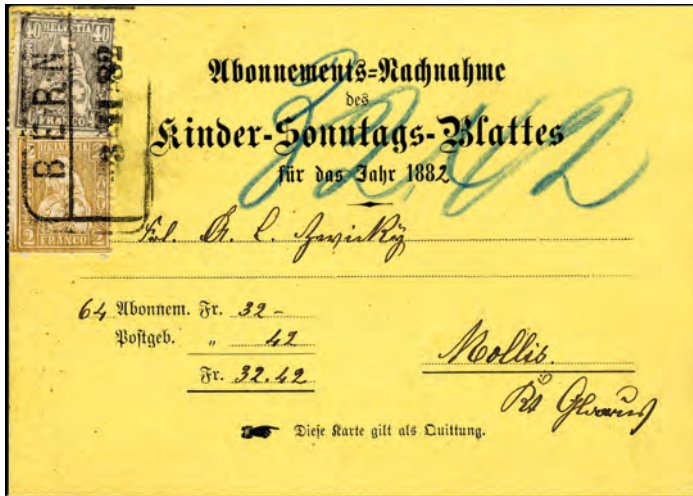 40 HELVETIA 40
FRANCO
2 HELVETIA 2
2 FRANCO 2
BERN
Abonnements=Nachnahme
des
Kinder=Sonntags=Blattes
für das Jahr 1882
32.42
Frl. A. C. Zwicky
64 Abonnem. Fr. 32 -
Postgeb. „ 42
Fr. 32.42
Mollis.
Kt Glarus
Diese Karte gilt als Quittung.